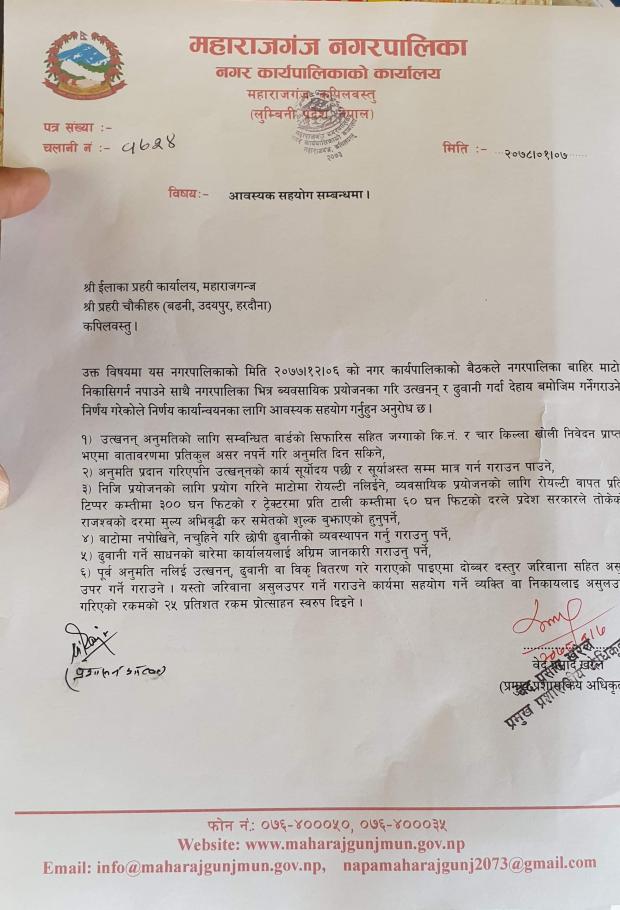 महाराजगंज नगरपालिका
नगर कार्यपालिकाको कार्यालय
महाराजगंज, कपिलवस्तु
(लुम्बिनी प्रदेश, नेपाल)
पत्र संख्या :-
चलानी नं :- १६२४
मिति :- २०७८।०१।०७
विषय:- आवस्यक सहयोग सम्बन्धमा ।
श्री ईलाका प्रहरी कार्यालय, महाराजगन्ज
श्री प्रहरी चौकीहरु (बढनी, उदयपुर, हरदौना)
कपिलवस्तु ।
उक्त विषयमा यस नगरपालिकाको मिति २०७७।१२।०६ को नगर कार्यपालिकाको बैठकले नगरपालिका बाहिर माटो
निकासिगर्न नपाउने साथै नगरपालिका भित्र ब्यवसायिक प्रयोजनका गरि उत्खनन् र ढुवानी गर्दा देहाय बमोजिम गर्नेगराउने
निर्णय गरेकोले निर्णय कार्यान्वयनका लागि आवस्यक सहयोग गर्नुहुन अनुरोध छ ।
१) उत्खनन् अनुमतिको लागि सम्वन्धित वार्डको सिफारिस सहित जग्गाको कि.नं. र चार किल्ला खोली निवेदन प्राप्त
भएमा वातावरणमा प्रतिकुल असर नपर्ने गरि अनुमति दिन सकिने,
२) अनुमति प्रदान गरिएपनि उत्खन्नको कार्य सूर्योदय पछी र सूर्याअस्त सम्म मात्र गर्न गराउन पाउने,
३) निजि प्रयोजनको लागि प्रयोग गरिने माटोमा रोयल्टी नलिईने, व्यवसायिक प्रयोजनको लागि रोयल्टी वापत प्रति
टिप्पर कम्तीमा ३०० घन फिटको र ट्रेक्टरमा प्रति टाली कम्तीमा ६० घन फिटको दरले प्रदेश सरकारले तोकेको
राजश्वको दरमा मुल्य अभिवृद्धी कर समेतको शुल्क बुझाएको हुनुपर्ने,
४) वाटोमा नपोखिने, नचुहिने गरि छोपी ढुवानीको ब्यवस्थापन गर्नु गराउनु पर्ने,
५) ढुवानी गर्ने साधनको बारेमा कार्यालयलाई अग्रिम जानकारी गराउनु पर्ने,
६) पूर्व अनुमति नलिई उत्खनन्, ढुवानी वा विकृ वितरण गरे गराएको पाइएमा दोब्बर दस्तुर जरिवाना सहित असु
उपर गर्ने गराउने । यस्तो जरिवाना असुलउपर गर्ने गराउने कार्यमा सहयोग गर्ने व्यक्ति वा निकायलाइ असुलउ
गरिएको रकमको २५ प्रतिशत रकम प्रोत्साहन स्वरुप दिइने ।
वेद प्रसाद खरेल
(प्रमुख प्रशासकिय अधिकृत
फोन नं.: ०७६-४०००५०, ०७६-४०००३५
Website: www.maharajgunjmun.gov.np
Email: info@maharajgunjmun.gov.np, napamaharajgunj2073@gmail.com